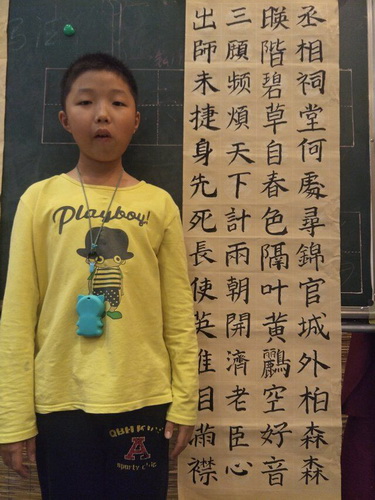 丞相祠堂何處尋錦官城外柏森森
暎階碧草自春色隔叶黃鸝空好音
三顧频煩天下計兩朝開濟老臣心
出師未捷身先死長使英襟
Playboy!
A